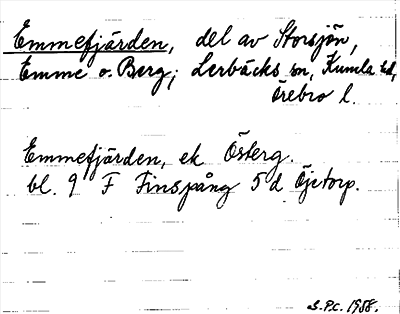 Emmefjärden, del av Storsjön,
Emme o. Berg; Lerbäcks sn, Kumla hd,
Örebro l.
Emmefjärden, ek Österg.
bl. 9 F Finspång 5 d Öjetorp.
S.P.C. 1988.